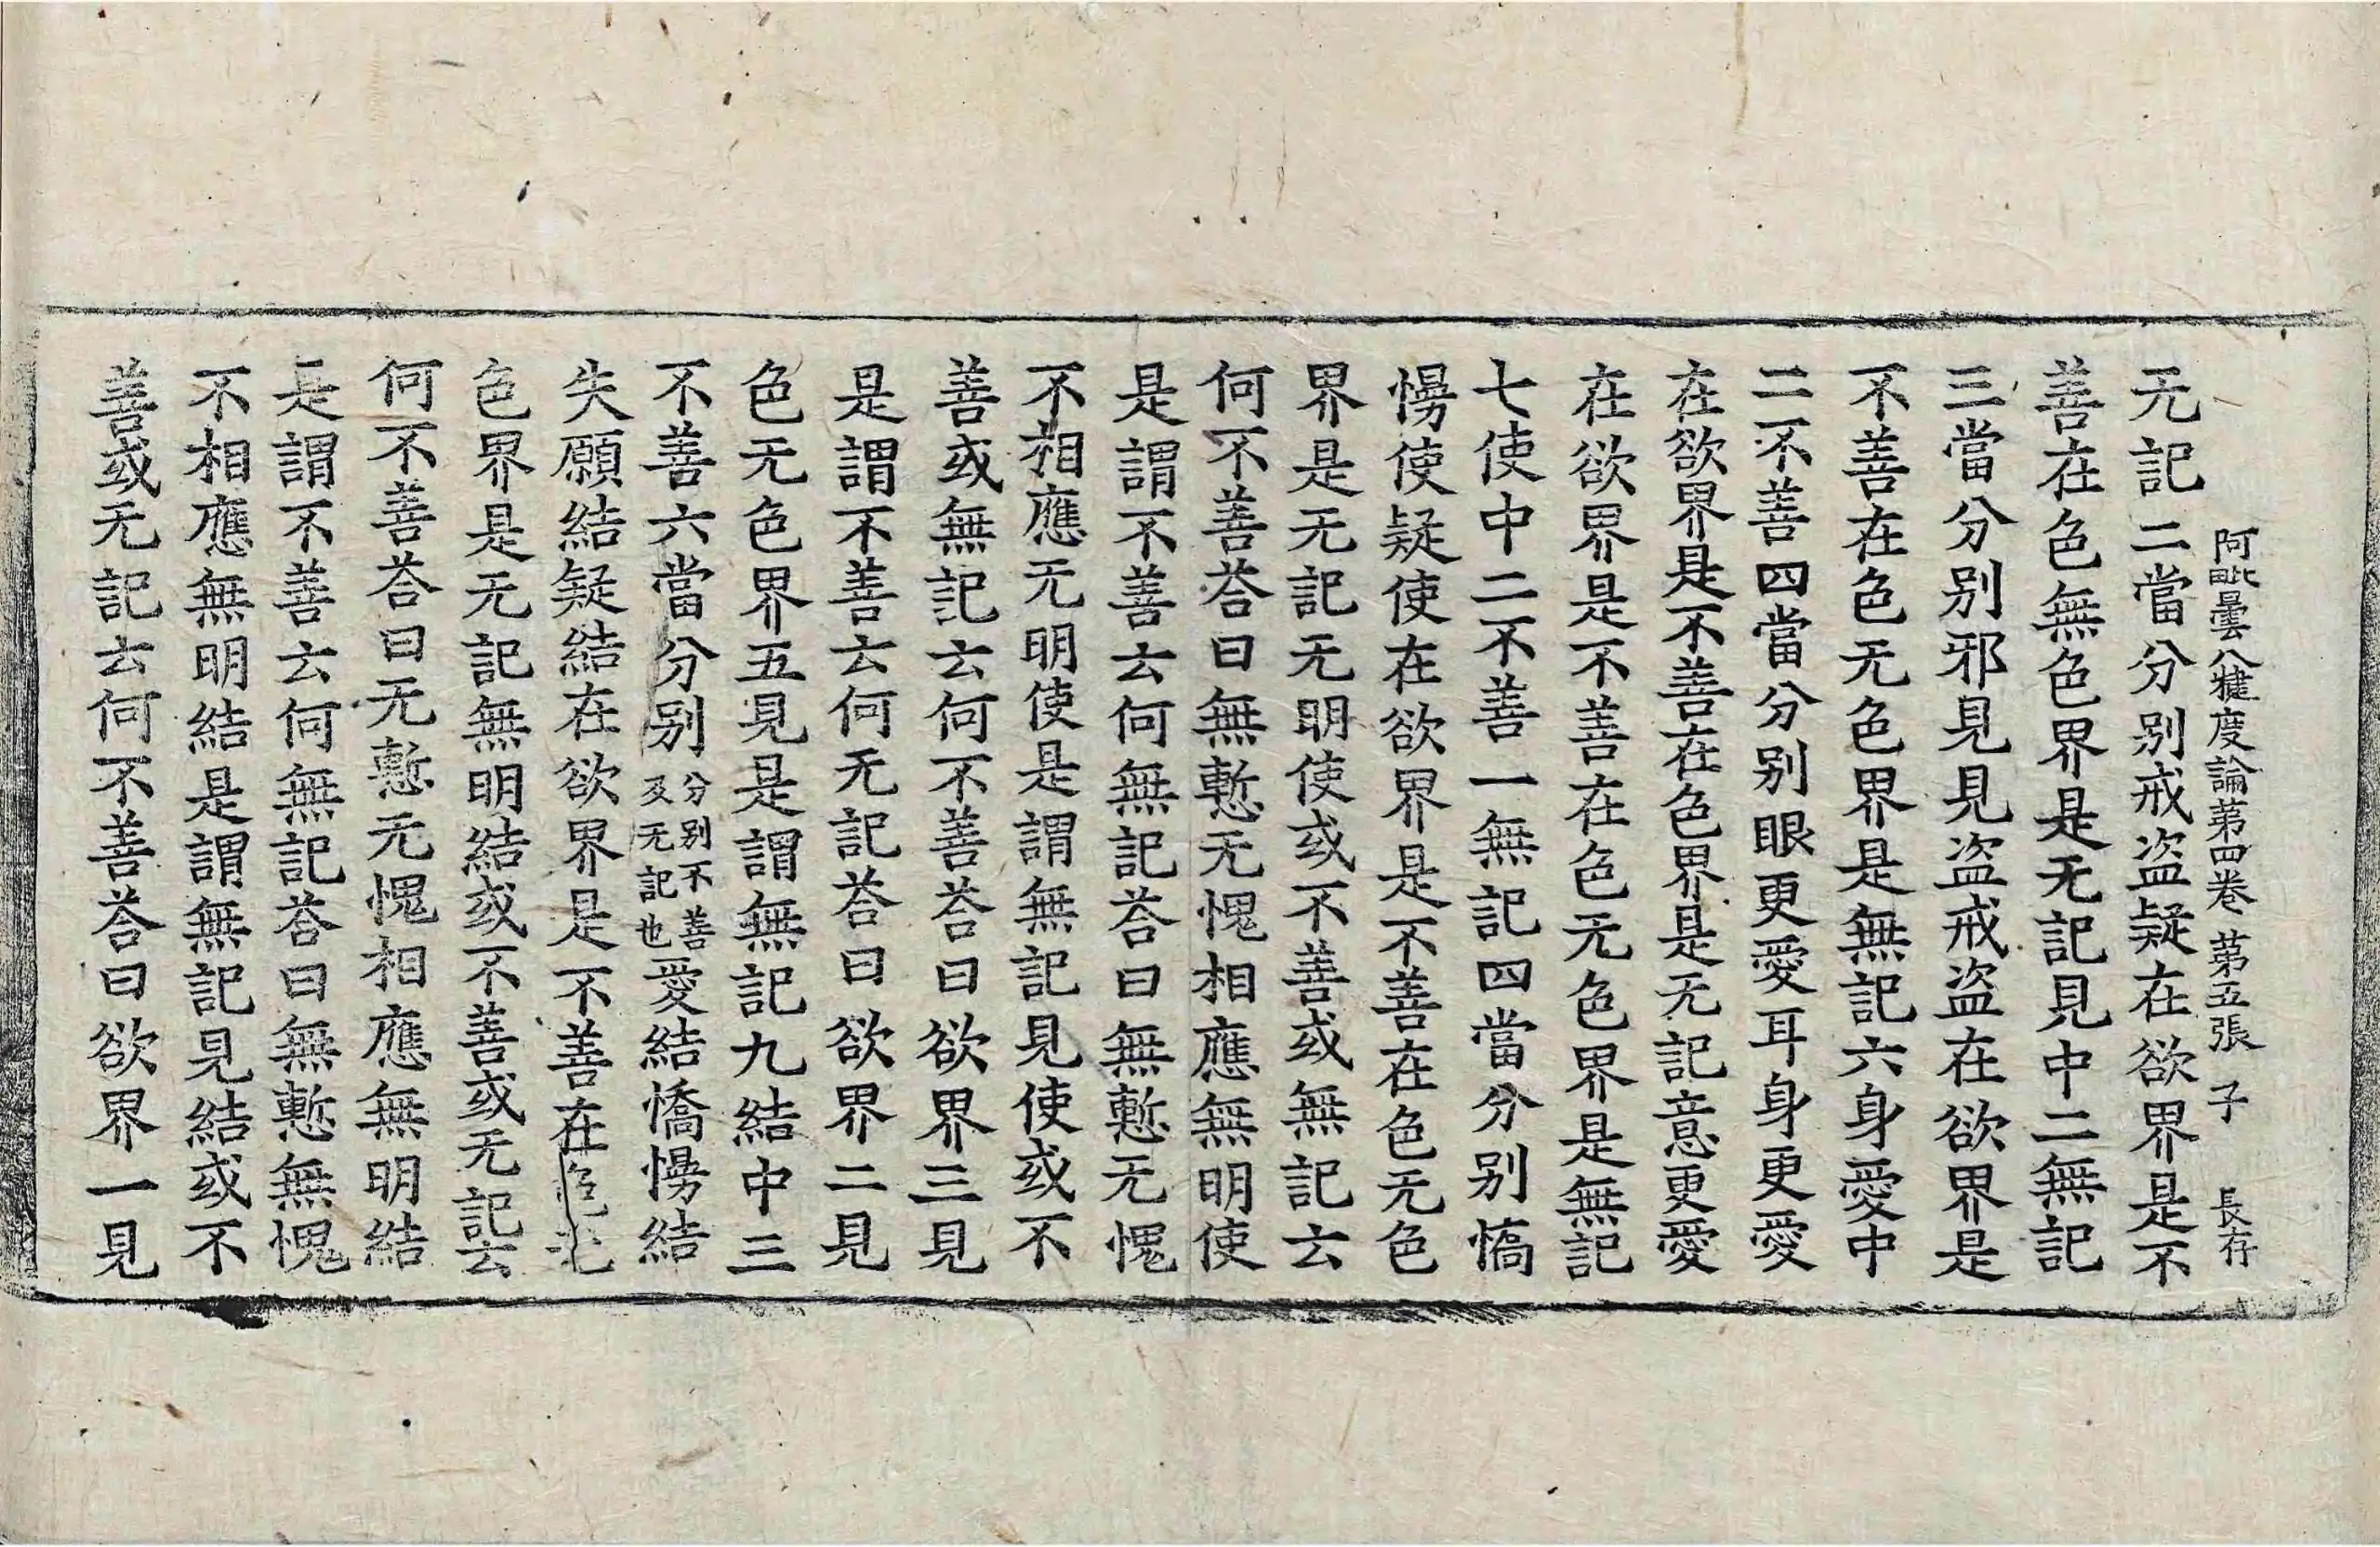 阿毗曇八犍度論第四卷 第五張 子 長存
无記二當分别戒盗疑在欲界是不
善在色無色界是无記見中二無記
三當分别邪見見盗戒盗在欲界是
不善在色无色界是無記六身愛中
二不善四當分别眼更愛耳身更愛
在欲界是不善在色界是无記意更愛
在欲界是不善在色无色界是無記
七使中二不善一無記四當分别憍
慢使疑使在欲界是不善在色无色
界是无記无明使或不善或無記云
何不善荅曰無慙无愧相應無明使
是謂不善云何無記荅曰無慙无愧
不相應无明使是謂無記見使或不
善或無記云何不善荅曰欲界三見
是謂不善云何无記荅曰欲界二見
色无色界五見是謂無記九結中三
不善六當分别分别不善及无記也愛結憍慢結
失願結疑結在欲界是不善在色无
色界是无記無明結或不善或无記云
何不善荅曰无慙无愧相應無明結
是謂不善云何無記荅曰無慙無愧
不相應無明結是謂無記見結或不
善或无記云何不善荅曰欲界一見